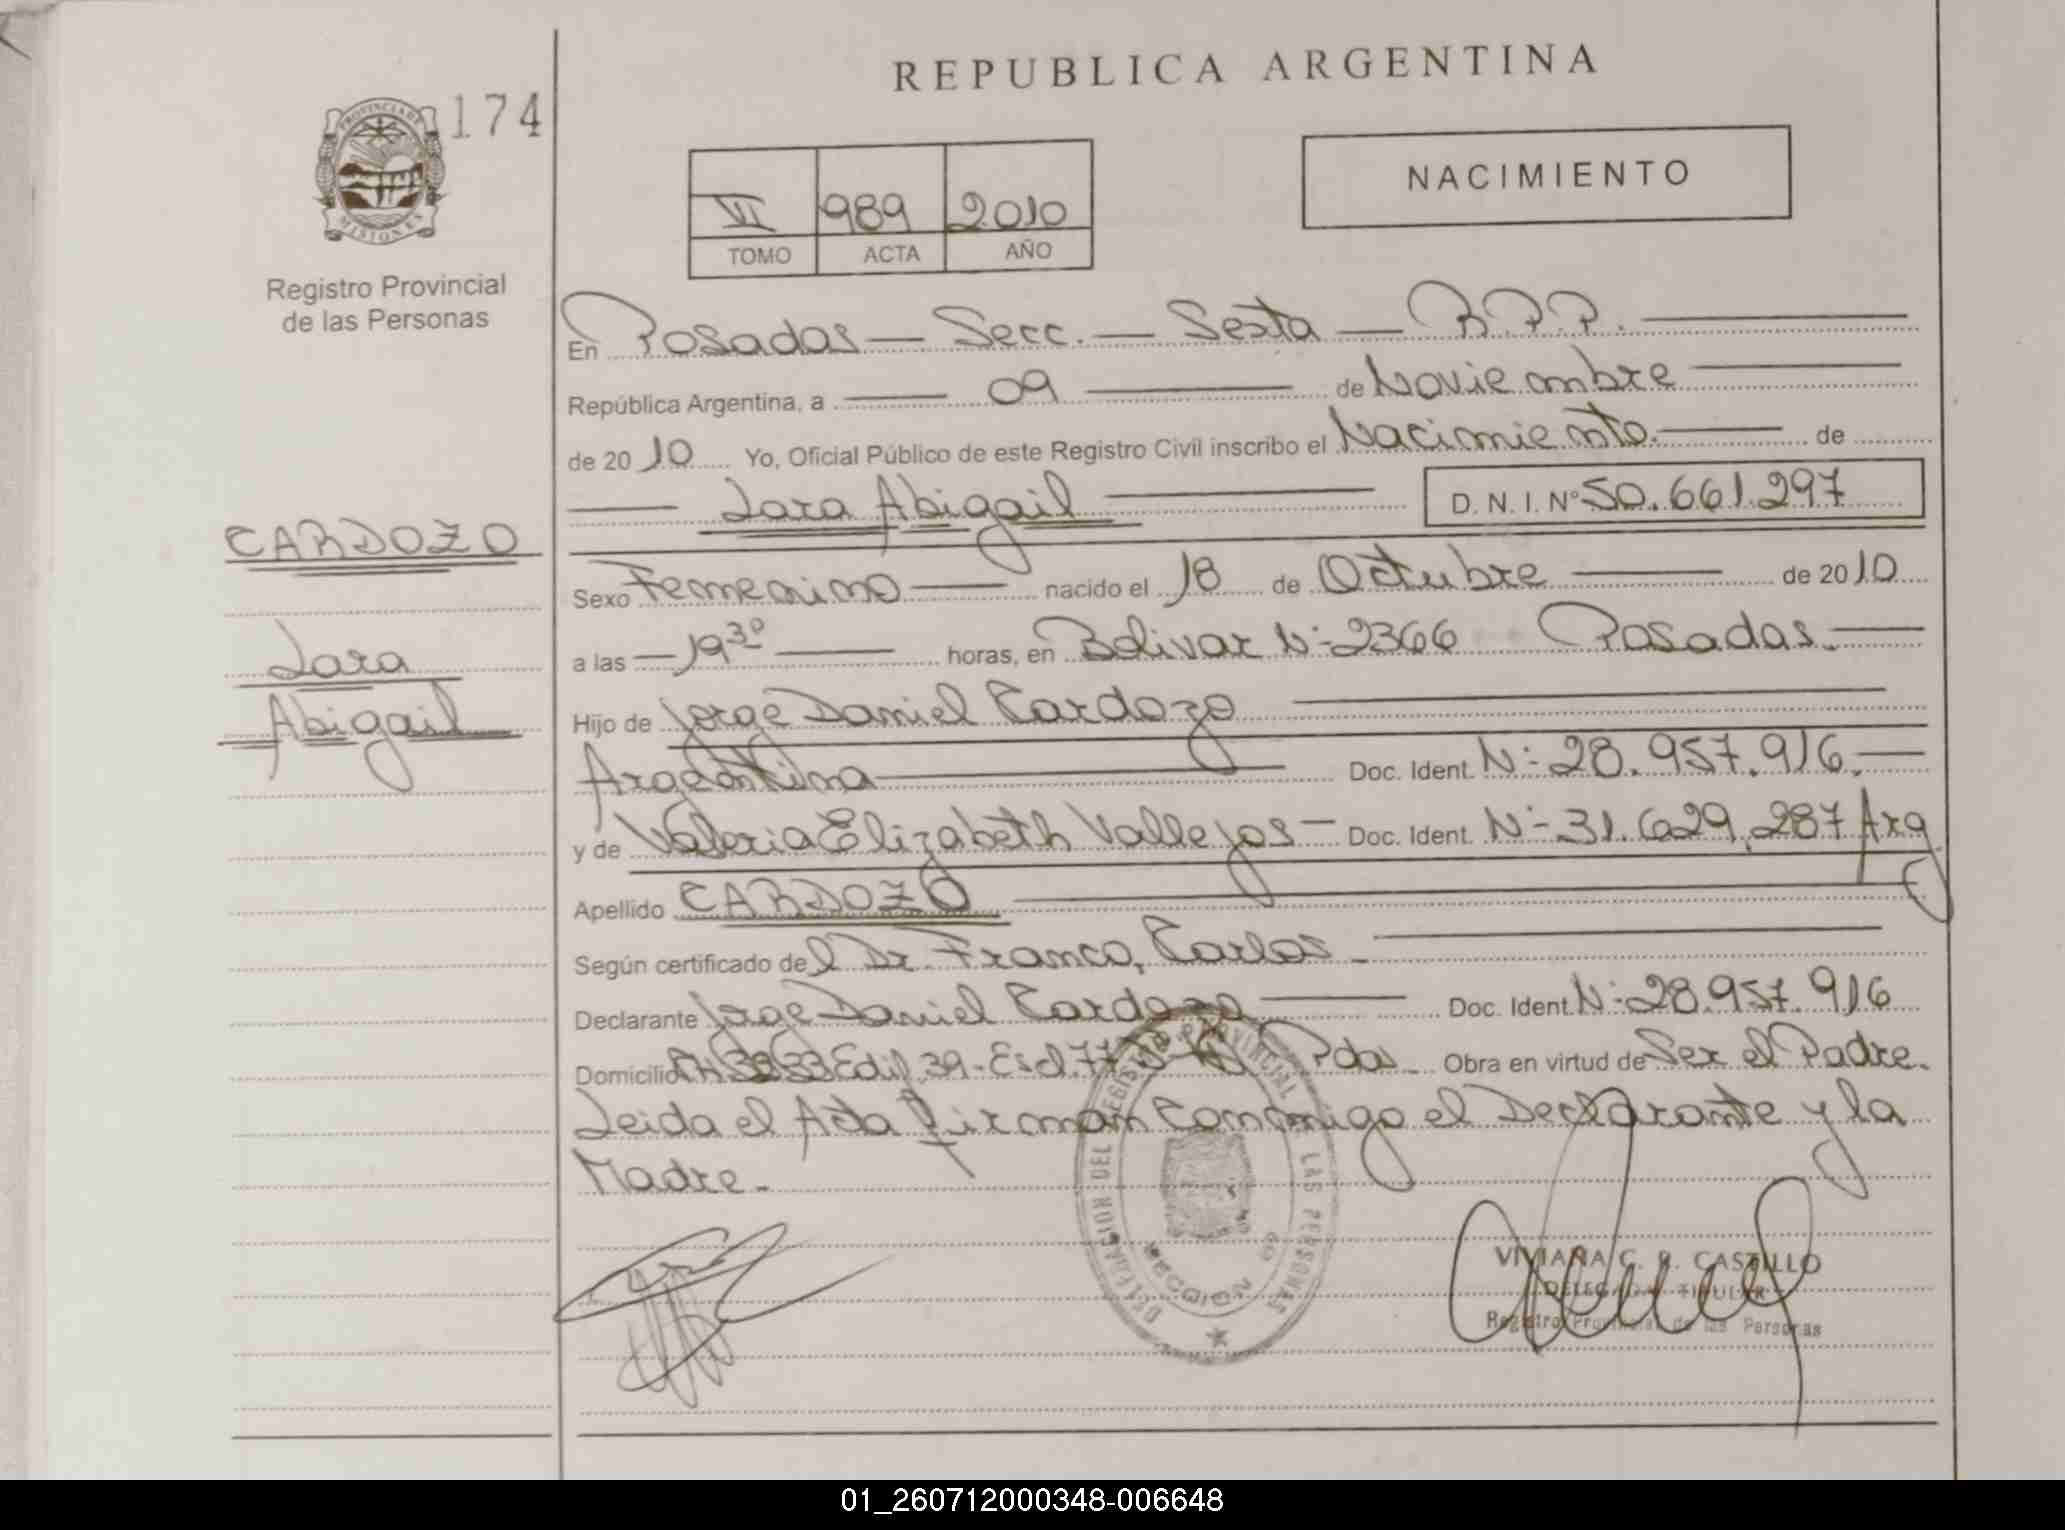 REPUBLICA ARGENTINA
174
PROVINCIA DE
MISIONES
Registro Provincial
de las Personas
NACIMIENTO
VI 989 2010
TOMO ACTA AÑO
En Posadas — Secc. — Sexta — R.P.P.
República Argentina, a — 09 — de Noviembre
de 2010 Yo, Oficial Público de este Registro Civil inscribo el Nacimiento. — de
— Lara Abigail — D. N. I. N° 50.661.297
CARDOZO
Lara
Abigail
Sexo Femenino — nacido el 18 de Octubre — de 2010
a las — 19 30 — horas, en Bolivar N: 2366 Posadas. —
Hijo de Jorge Daniel Cardozo —
Argentina — Doc. Ident. N: 28.957.916. —
y de Valeria Elizabeth Vallejos — Doc. Ident. N: 31.629.287 Arg
Apellido CARDOZO —
Según certificado del Dr. Franco, Carlos -
Declarante Jorge Daniel Cardozo — Doc. Ident. N: 28.957.916
Domicilio Edif. 39 - Pdas Obra en virtud de Ser el Padre.
Leida el Acta firman conmigo el Declarante y la
Madre -
DELEGACION DEL REGISTRO PROVINCIAL DE LAS PERSONAS
SECCION 6a
VIVIANA C. R. CASTILLO
DELEGADA TITULAR
Registro Provincial de las Personas
01_260712000348-006648